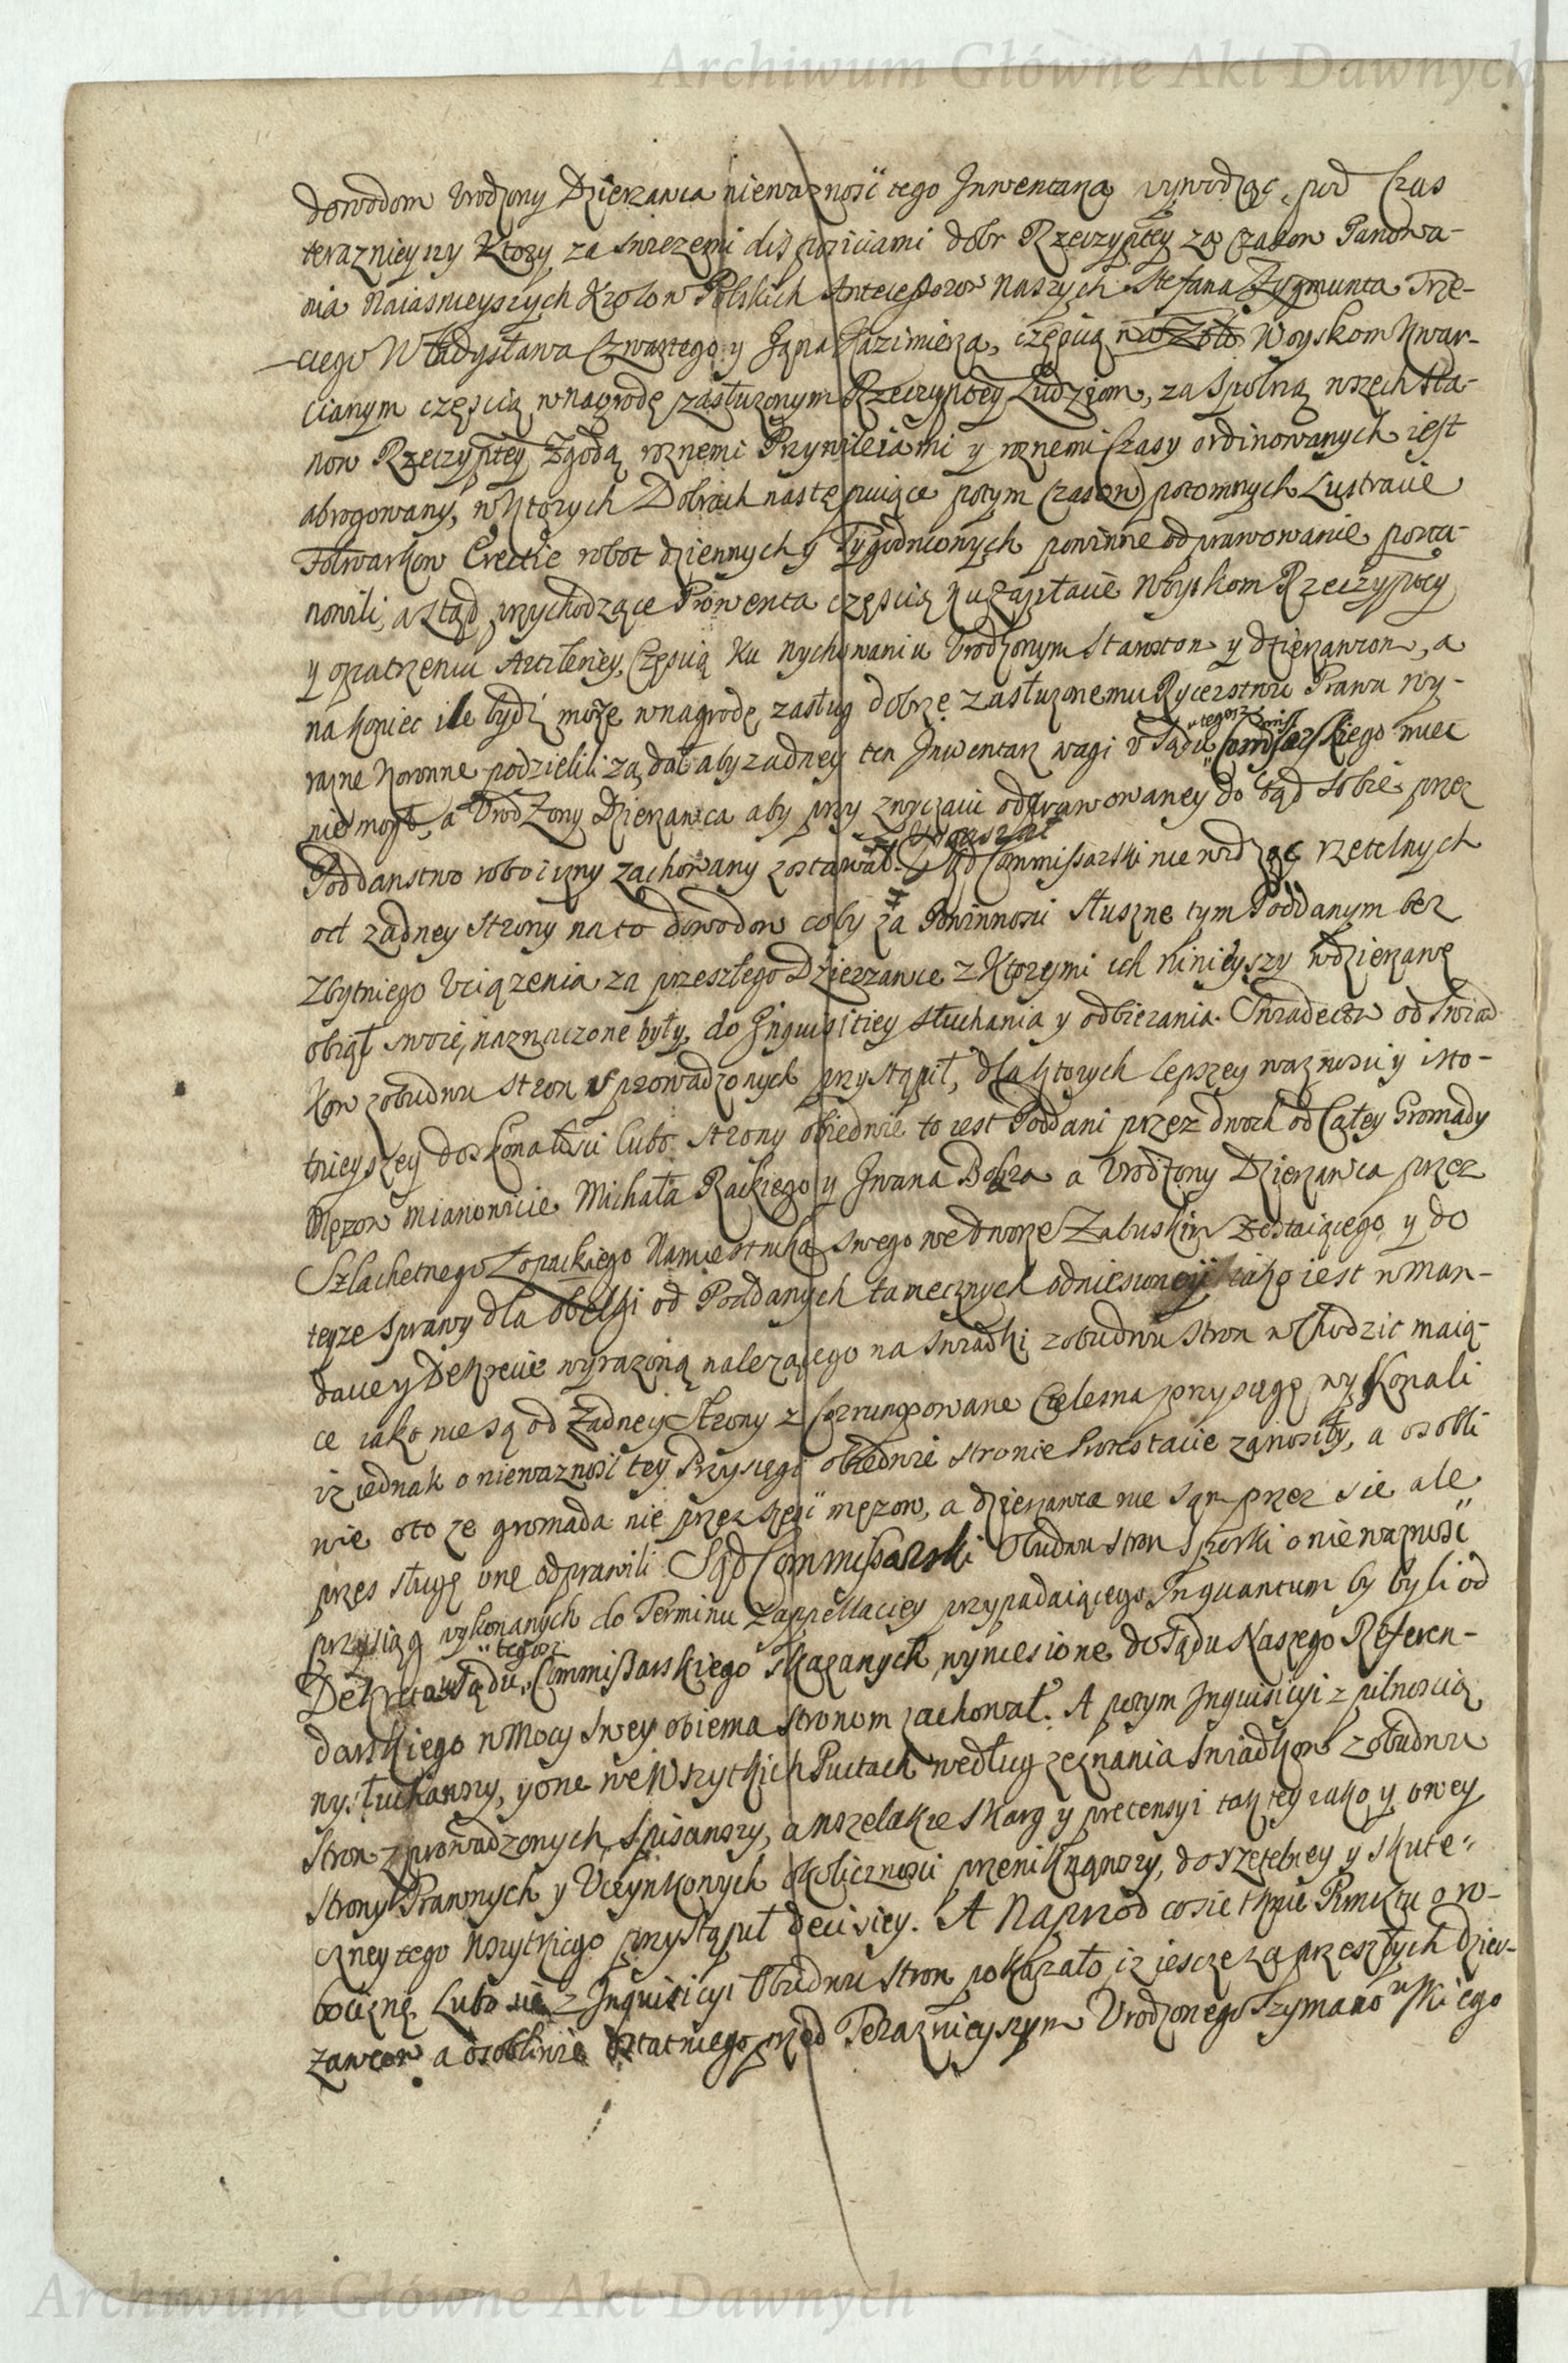 Archiwum Główne Akt Dawnych
dowodom Vrodzony Dzierzawca niewaznosć tego Inwentarza wywodząc, pod Czas
teraznieyszy Ktory za swiezemi disposiciami dobr Rzeczyptey za Czasow Panowa-
nia Naiasnieyszych Krolow Polskich Antecessorow Naszych Stefana Zygmunta Trze-
ciego Władysława Czwartego y Jana Kazimierza, częscią na Zołd Woyskom Kwar-
cianym częscią w nagrodę zasłuzonym Rzeczyptey Ludziom, za Spolną wszech Sta-
now Rzeczyptey Zgodą roznemi Przywileiami y roznemi Czasy ordinowanych iest
abrogowany, w Ktorych Dobrach następuiące potym Czasow potomnych Lustracie
Folwarkow Erectie robot dziennych y Tygodniowych powinne odprawowanie posta-
nowili, a Ztąd przychodzące Prowenta częscią ku Zapłacie Woyskom Rzeczyptey
y opatrzeniu Artileriey, Częscią Ku wychowaniu Vrodzonym Starostow y dzierzawcow, a
na koniec ile bydź moze w nagrodę zasług dobrze zasłuzonemu Rycerstwu Prawa wy-
razne Koronne podzielili, ządał aby zadney ten Inwentarz wagi v Sądu „tegoz Commissarskiego miec
nie mogł, a Vrodzony Dzierzawca aby przy zwyczaiu odprawowaney do tąd Sobie przez
Poddanstwo roboćizny zachowany zostawał. Sąd Commissarski nie widząc rzetelnych
od zadney Strony na to dowodow coby za Powinnosci Słuszne tym Poddanym bez
Zbytniego Vciązenia za przeszłego Dzierzawce z Ktoremi ich ninieyszy w dzierzawę
obiął swoię, naznaczone były, do Inquisitiey słuchania y odbierania Swiadectw od Swiad-
kow z obudwu Stron sprowadzonych przystąpił, dla ktorych lepszey waznosci y isto-
tnieyszey doskonałosci lubo Strony obiedwie to iest Poddani przez dwoch od Całey Gromady
Męzow mianowicie Michała Rackiego y Iwana Bobra a Vrodzony Dzierzawca przez
Szlachetnego Zopackiego Namiestnika swego we dworze Zabuskim zostaiącego, y do
teyze Sprawy dla obelgi od Poddanych tamecznych odniesioney iako iest w Man-
dacie y Dekrecie wyrazoną nalezącego na Swiadki z obudwu Stron wchodzic maią-
ce iako nie są od Zadney Strony z Corrumpowane Cielesna przysięgę wykonali
iz iednak o niewaznosć tey Przysięgi obiedwie stronie Protestacie zanosiły, a osobli
wie oto ze gromada nie przez Szesć męzow, a dzierzawca nie sam przez sie ale
przes sługę onę odprawili. Sąd Commissarski obudwu Stron Sporki o niewaznosć
przysiąg wykonanych do Terminu z appellaciey przypadaiącego, Inquantum by byli od
Dekretow Sądu „tegoz Commissarskiego Skazanych wyniesione do Sądu Naszego Referen-
darskiego w Mocy Swey obiema Stronom zachował. A potym Inquisicyi z pilnoscią
wysłuchawszy, y one we Wszytkich Puctach według zeznania Swiadkow z obudwu
Stron zprowadzonych Spisawszy, a wszelakie Skarg y pretensyi tak tey iako y owey
Strony Prawnych y Vczynkowych okolicznosci przeniknąwszy, do rzetelney y skute-
czney tego Wszytkiego przystąpił decisiey. A Naprzod co sie tknie Punktu o ro-
boćiznę, Lubo się z Inquisicyi Obudwu Stron pokazało, iz iescze za przeszłych dzier-
zawcow a osobliwie ostatniego przed Teraznieyszym Vrodzonego Szymanowskiego
Archiwum Główne Akt Dawnych